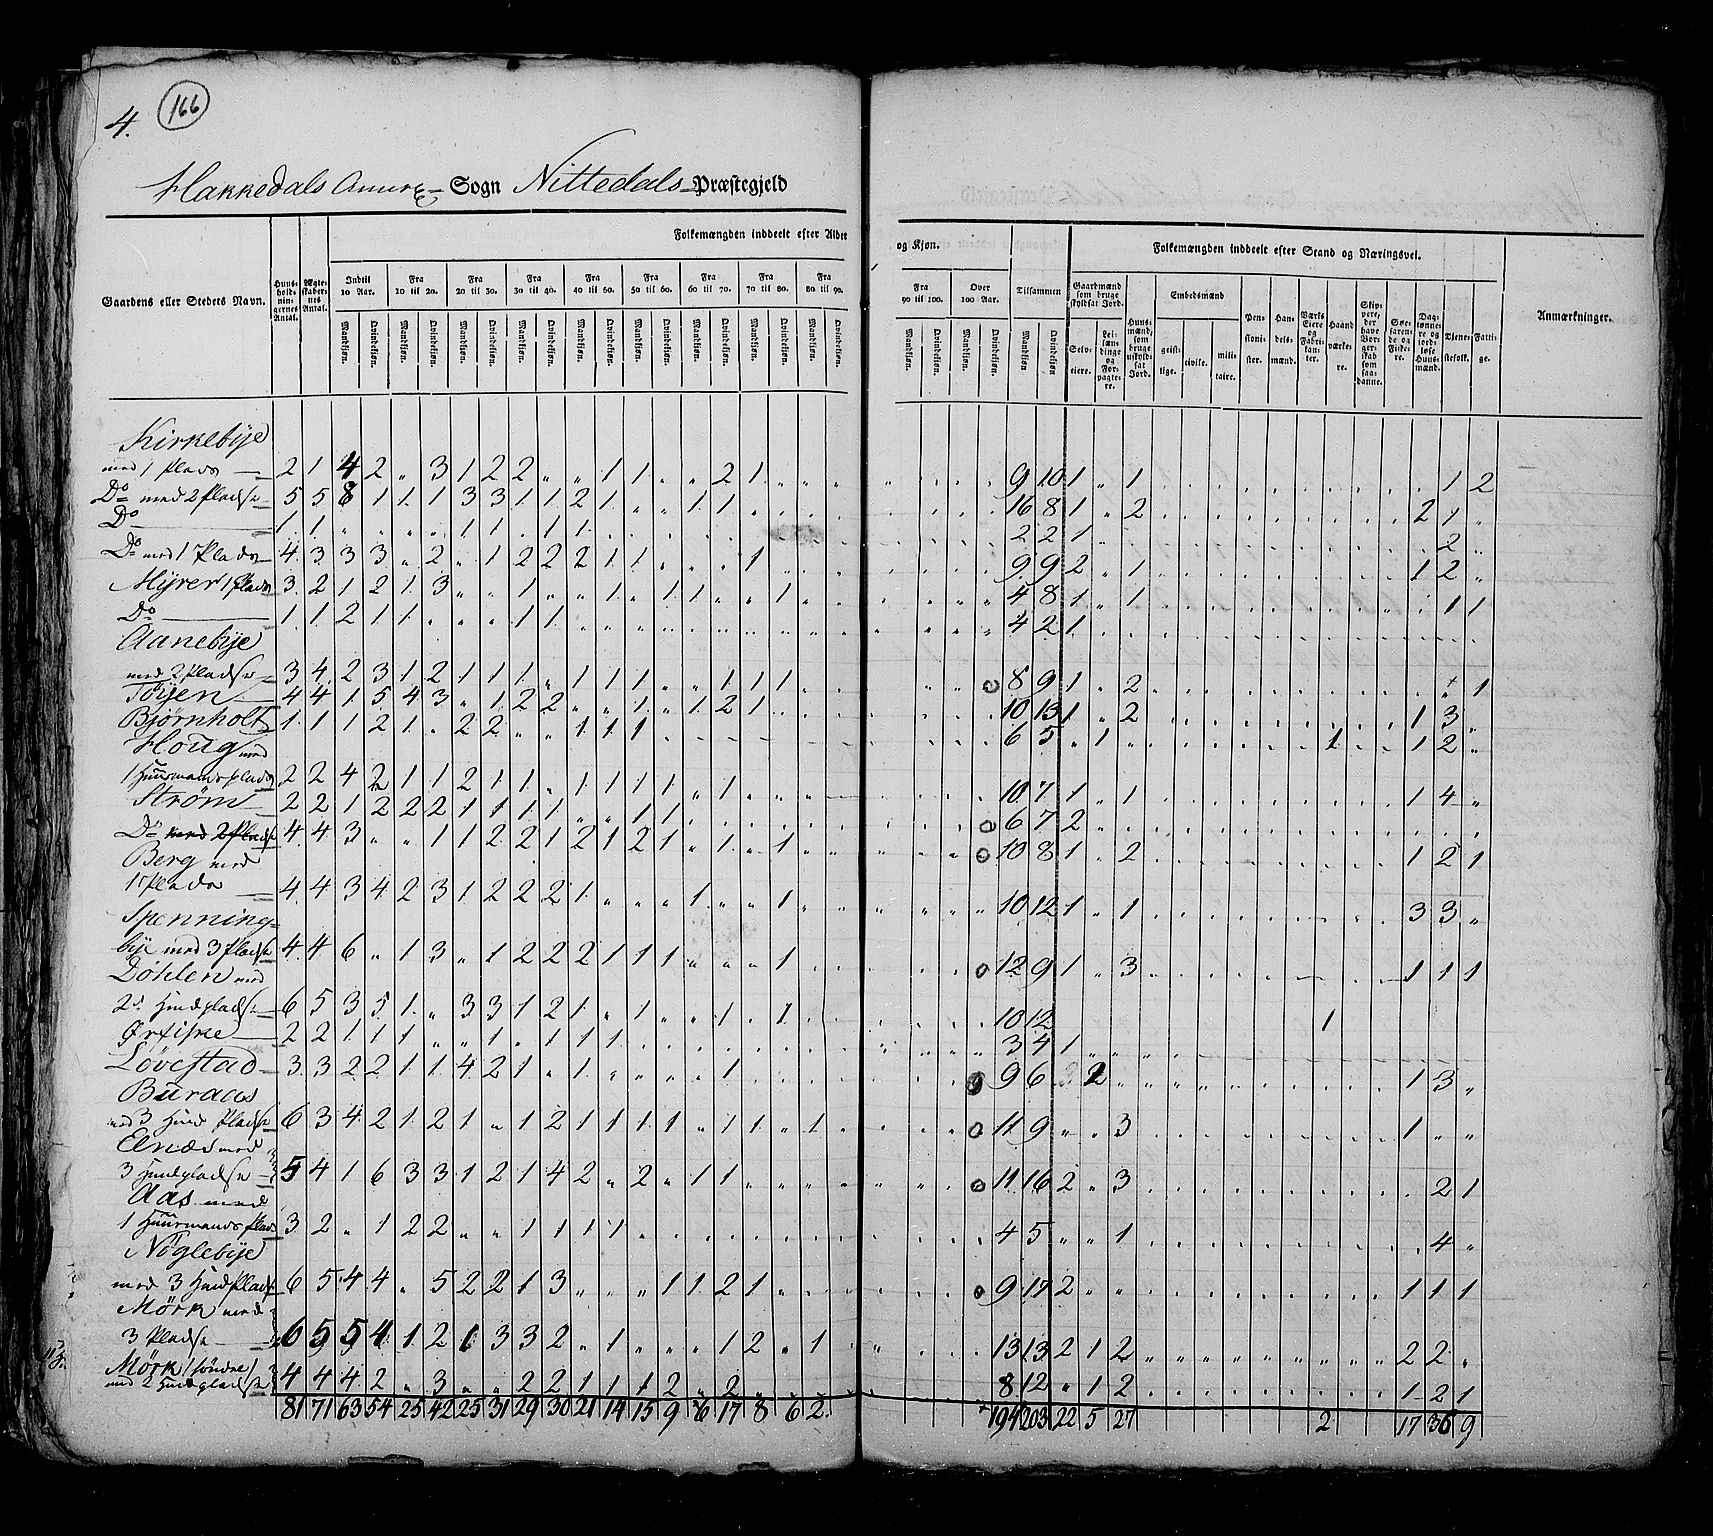 4.
166
Hakkedals Annex Sogn Nittedals Præstegjeld
Folkemængden inddeelt efter Alder
og Kjøn.
Folkemængden inddeelt efter Stand og Næringsvei.
Gaardens eller Stedets Navn.
Huus-holdnin-gernes Antal.
Ægte-skaber-nes Antal.
Indtil 10 Aar.
Fra 10 til 20.
Fra 20 til 30.
Fra 30 til 40.
Fra 40 til 50.
Fra 50 til 60.
Fra 60 til 70.
Fra 70 til 80.
Fra 80 til 90.
Fra 90 til 100.
Over 100 Aar.
Tilsammen
Mandkjøn. Qvindekjøn.
Gaardmænd som bruge skyldsat Jord.
Selv-eiere.
Lei-lændinge og For-pagtere.
Huus-mænd, som bruge uskyldsat Jord.
Embedsmænd
geist-lige.
civile.
mili-taire.
Pen-sioni-ster.
Han-dels-mænd.
Værks-Eiere og Fabri-kanter.
Haand værke-re.
Skip-pere, der have Bor-ger-skab som saa-danne.
Søe-farende og Fiske-re.
Dag-lønne-re og jord-løse Huus-mænd.
Tjene-stefolk.
Fatti-ge.
Anmærkninger.
Kirkebye
med 1 Plads 2 1 4 2 „ 3 1 2 2 „ „ 1 1 „ „ 2 1 9 10 1 „ 1 1 2
Do med 2 Pladse 5 5 8 1 1 1 3 3 1 1 2 1 „ „ 1 1 16 8 1 „ 2 2 1 „
Do 1 1 „ „ „ „ 1 1 „ 1 1 2 2 1 2 „
Do med 1 Plads 4 3 3 3 „ 2 „ 1 2 2 2 1 1 „ „ „ 1 9 9 2 „ 1 1 2 „
Myrer 1 Plads 3 2 1 2 1 3 „ „ 1 „ „ 1 „ 1 1 „ „ 1 4 8 1 „ 1 1 1
Do 1 1 2 1 1 „ „ „ 1 1 4 2 1
Aanebye
med 2 Pladse 3 4 2 3 1 2 1 1 1 „ 1 1 1 „ „ 1 1 1 8 9 1 „ 2 „ 1
Töyen 4 4 1 5 4 3 „ 1 2 2 „ „ 1 „ 1 2 1 10 13 1 „ 2 1 3 „
Bjørnholt 1 1 1 2 1 „ 2 2 „ „ 1 1 1 6 5 „ 1 1 1 2 „
Houg med
1 Huusmandsplads 2 2 4 2 1 1 2 1 1 „ 1 1 1 1 „ 1 10 7 1 „ 1 1 4 „
Strøm 2 2 1 2 2 2 1 1 1 1 „ „ 1 1 6 7 2
Do med 2 Pladse 4 4 3 „ „ 1 1 2 2 1 2 1 2 1 „ 1 „ 1 10 8 1 „ 2 1 2 1
Berg med
1 Plads 4 4 3 4 2 3 1 2 2 2 1 „ „ „ 1 „ „ 1 10 12 1 „ 1 3 3 „
Spenning-
bye med 3 Pladse 4 4 6 „ 1 3 „ 1 2 2 2 1 1 1 „ „ „ 1 12 9 1 „ 3 1 1 1
Döhlen med
2 Huuspladse 6 5 3 5 1 „ 3 3 1 2 1 „ 1 „ „ 1 „ 1 10 12 1
Ørfiske 2 2 1 1 1 „ „ 1 „ 1 1 1 3 4 1
Løvestad 3 3 2 2 1 1 4 2 1 „ 1 „ „ „ „ 1 9 6 2 1 3 „
Buraas
med 3 Huus Pladse 6 3 4 2 1 2 1 „ 1 2 1 1 1 1 „ 1 1 „ 1 11 9 „ „ 3 1 „ „
Elnæs med
3 Huuspladse 5 4 1 6 3 3 1 2 1 4 2 „ 2 „ 1 1 11 16 2 „ 3 2 1
Aas med
1 Huusmands plads 3 2 „ 1 2 2 „ „ 1 1 1 1 4 5 „ „ 1 4 „
Nöglebye
med 3 Huus Pladse 6 5 4 4 „ 5 2 2 1 3 „ „ „ 1 1 2 1 9 17 2 1 1 1
Mörk med
3 Pladse 6 5 5 4 1 2 1 3 3 2 „ 1 „ „ „ 1 2 „ 1 13 13 2 1 2 2 2 „
Mörk (søndre)
med 2 Huuspladse 4 4 4 2 „ 3 „ „ 2 2 1 1 1 2 „ 2 8 12 „ 1 2 1 2 1
81 71 63 54 25 42 25 31 29 30 21 14 15 9 6 17 8 6 2 194 203 22 5 27 2 17 36 9